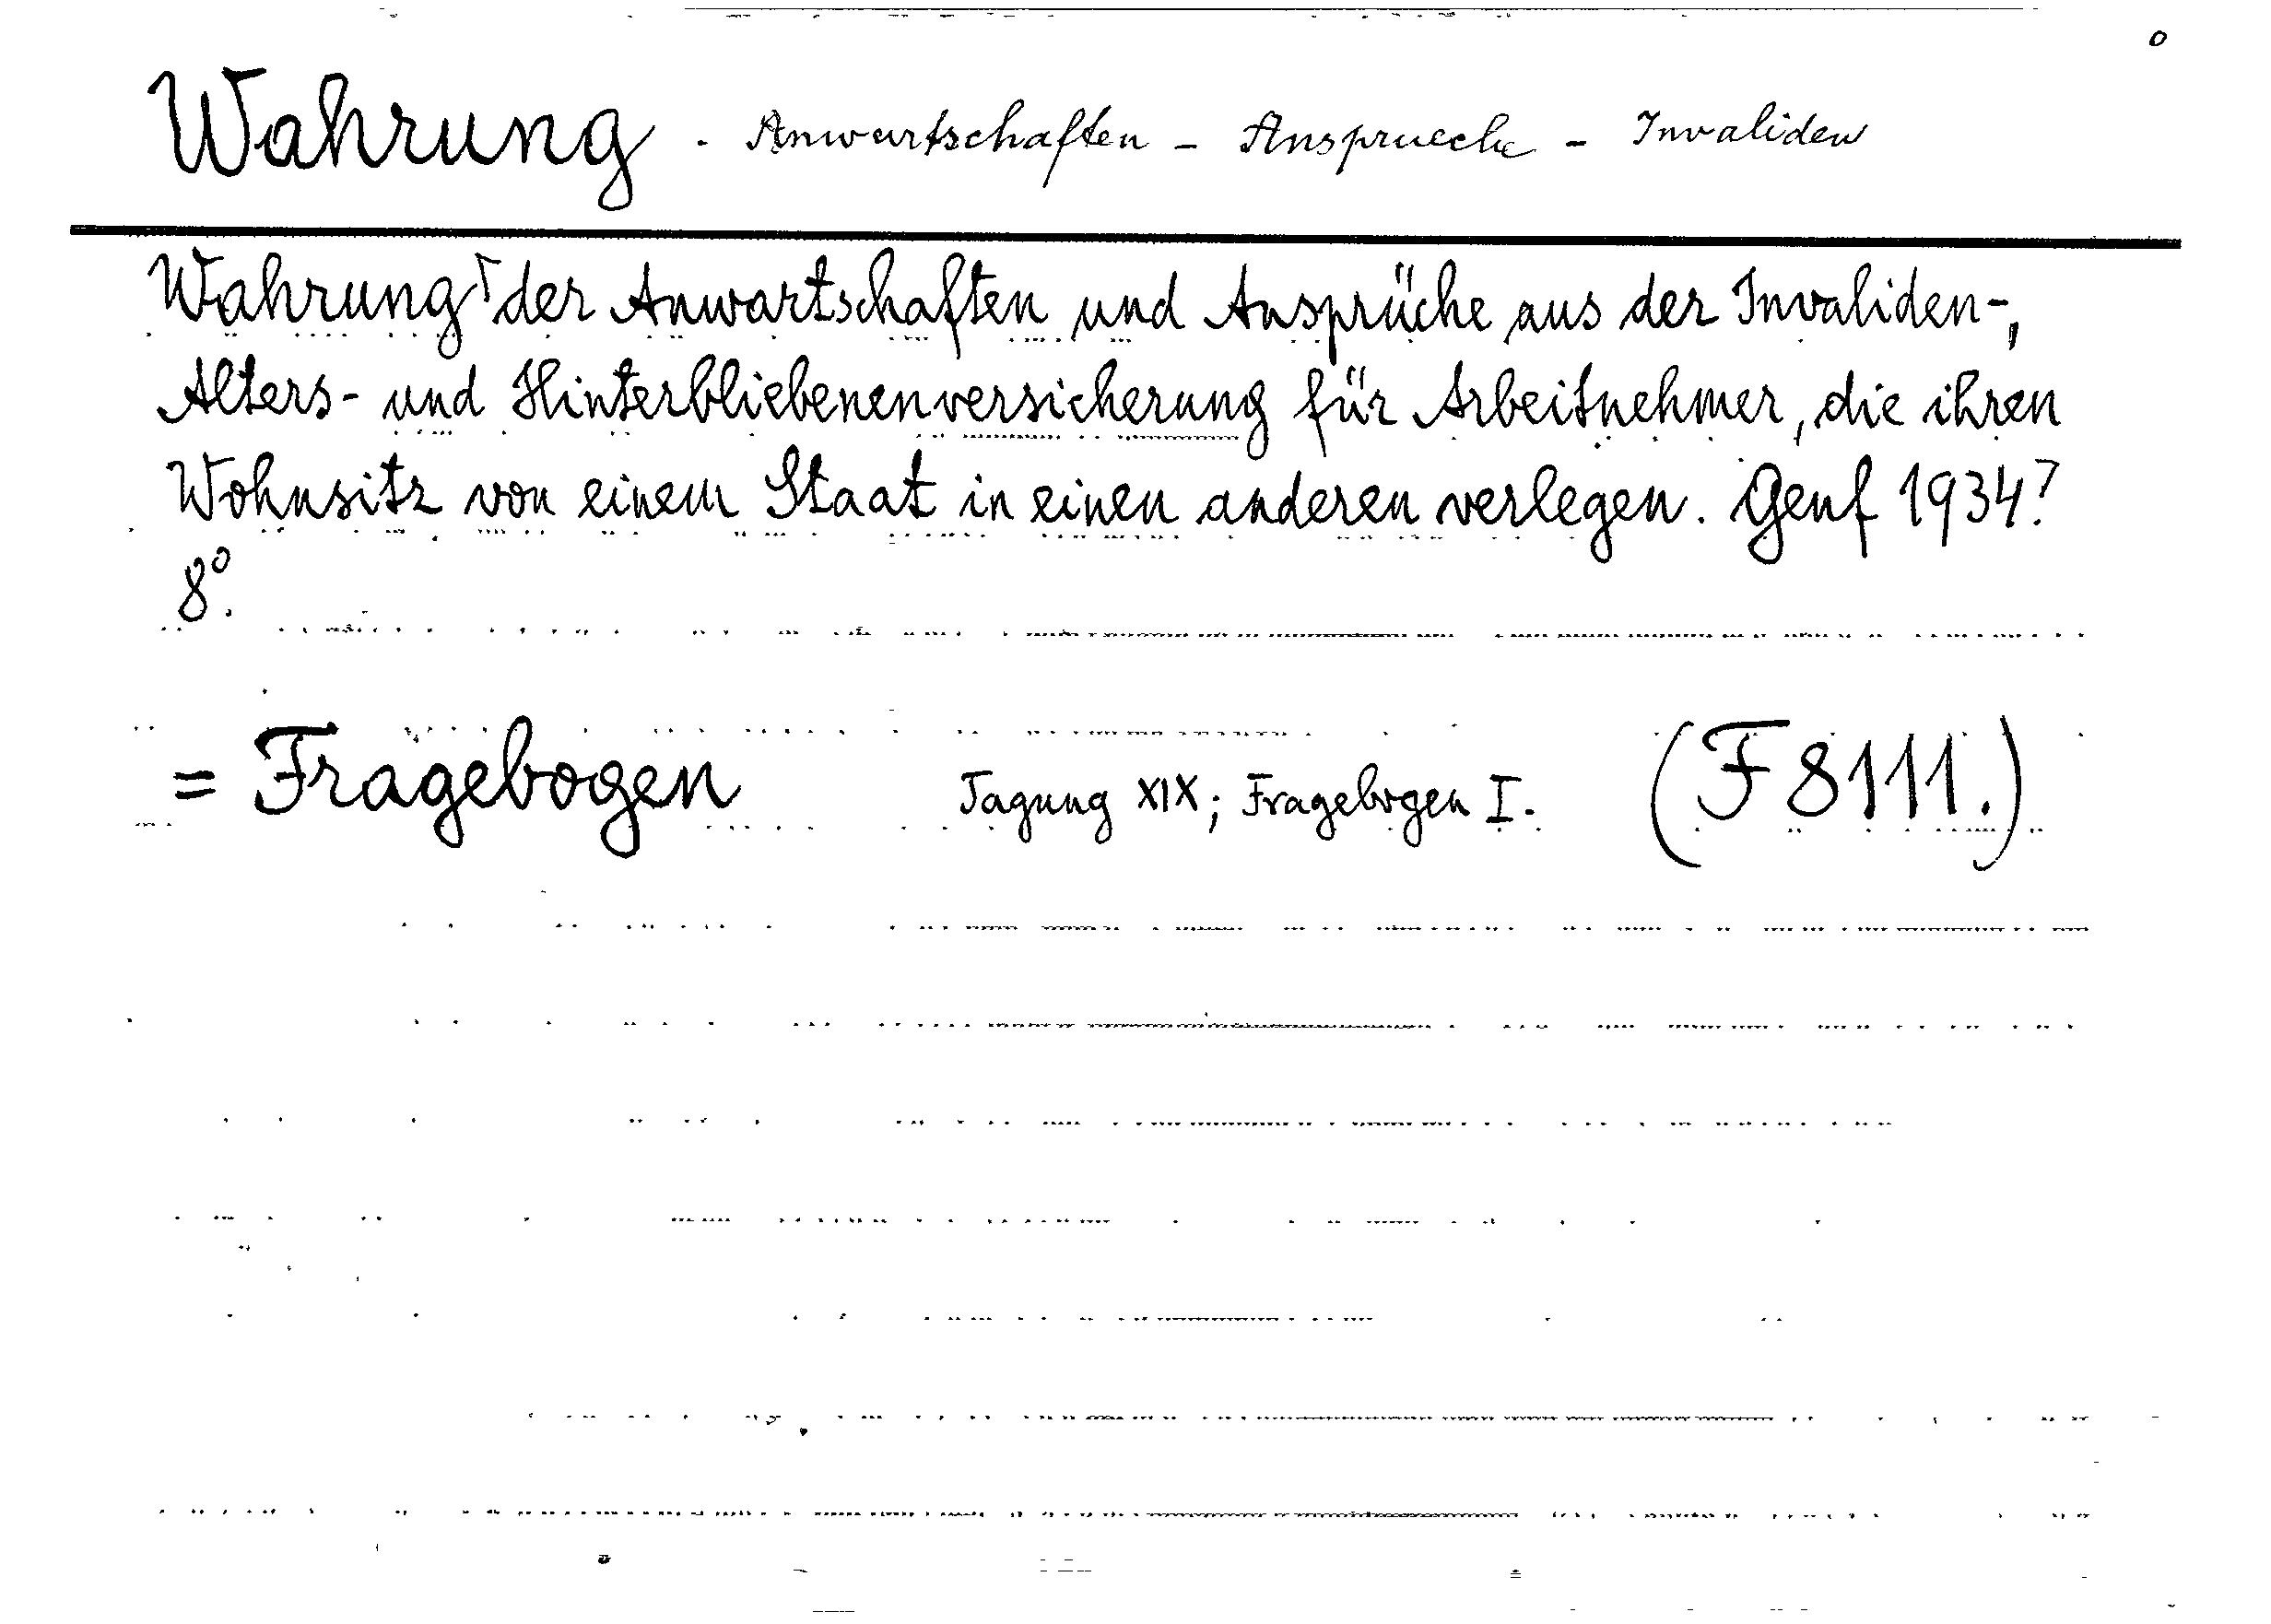 o
Wahrung - Anwartschaften - Ansprueche - Invaliden
Wahrung der Anwartschaften und Ansprüche aus der Invaliden-,
Alters- und Hinterbliebenenversicherung für Arbeitnehmer, die ihren
Wohnsitz von einem Staat in einen anderen verlegen. Genf 1934?
8°.
= Fragebogen Tagung XIX; Fragebogen I. (F 8111.)